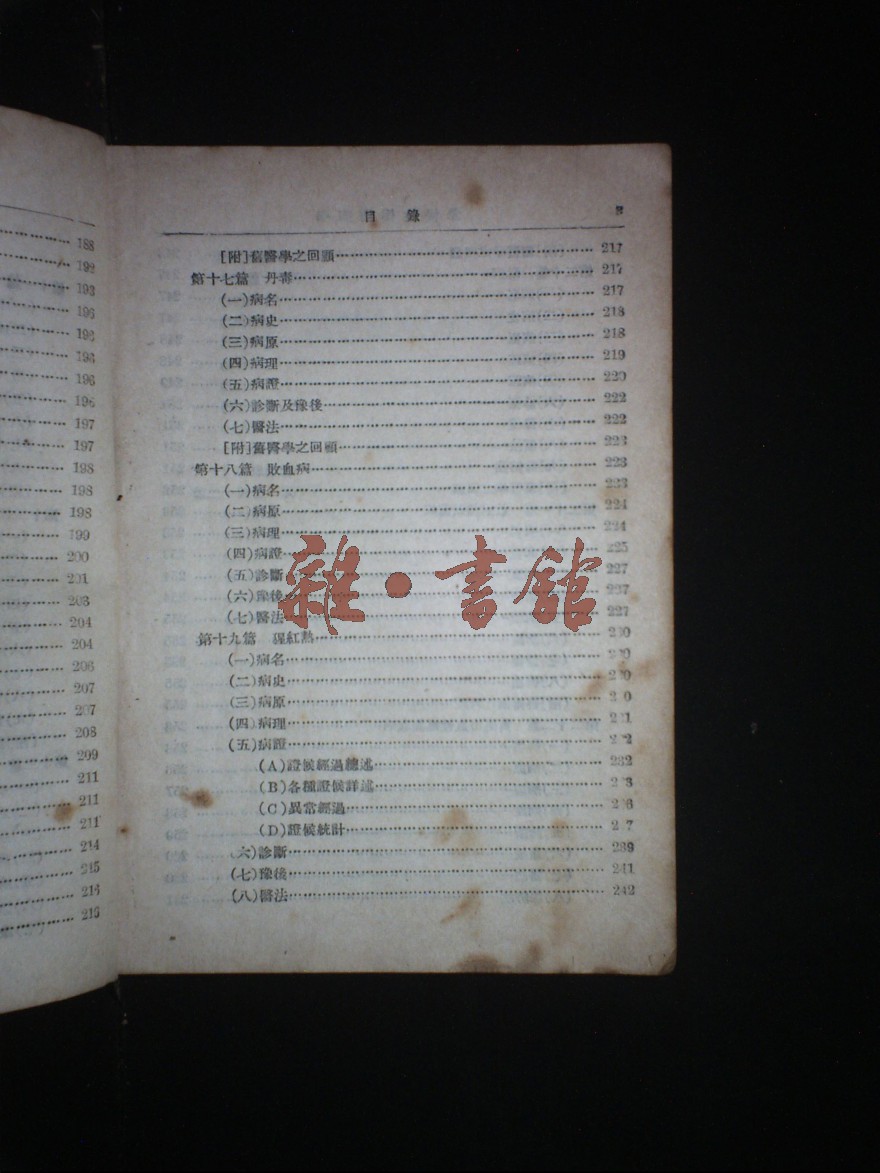 188
192
193
196
196
196
196
196
197
197
198
198
198
199
200
201
203
204
204
206
207
207
208
209
211
211
211
214
215
216
216
目錄
[附]舊醫學之回顧……217
第十七篇 丹毒……217
(一)病名……217
(二)病史……218
(三)病原……218
(四)病理……219
(五)病證……220
(六)診斷及豫後……222
(七)醫法……222
[附]舊醫學之回顧……223
第十八篇 敗血病……223
(一)病名……223
(二)病原……224
(三)病理……224
(四)病證……225
(五)診斷……227
(六)豫後……227
(七)醫法……227
第十九篇 猩紅熱……230
(一)病名……
(二)病史……
(三)病原……
(四)病理……
(五)病證……
(A)證候經過總述……232
(B)各種證候詳述……
(C)異常經過……
(D)證候統計……
(六)診斷……239
(七)豫後……241
(八)醫法……242
雜·書館